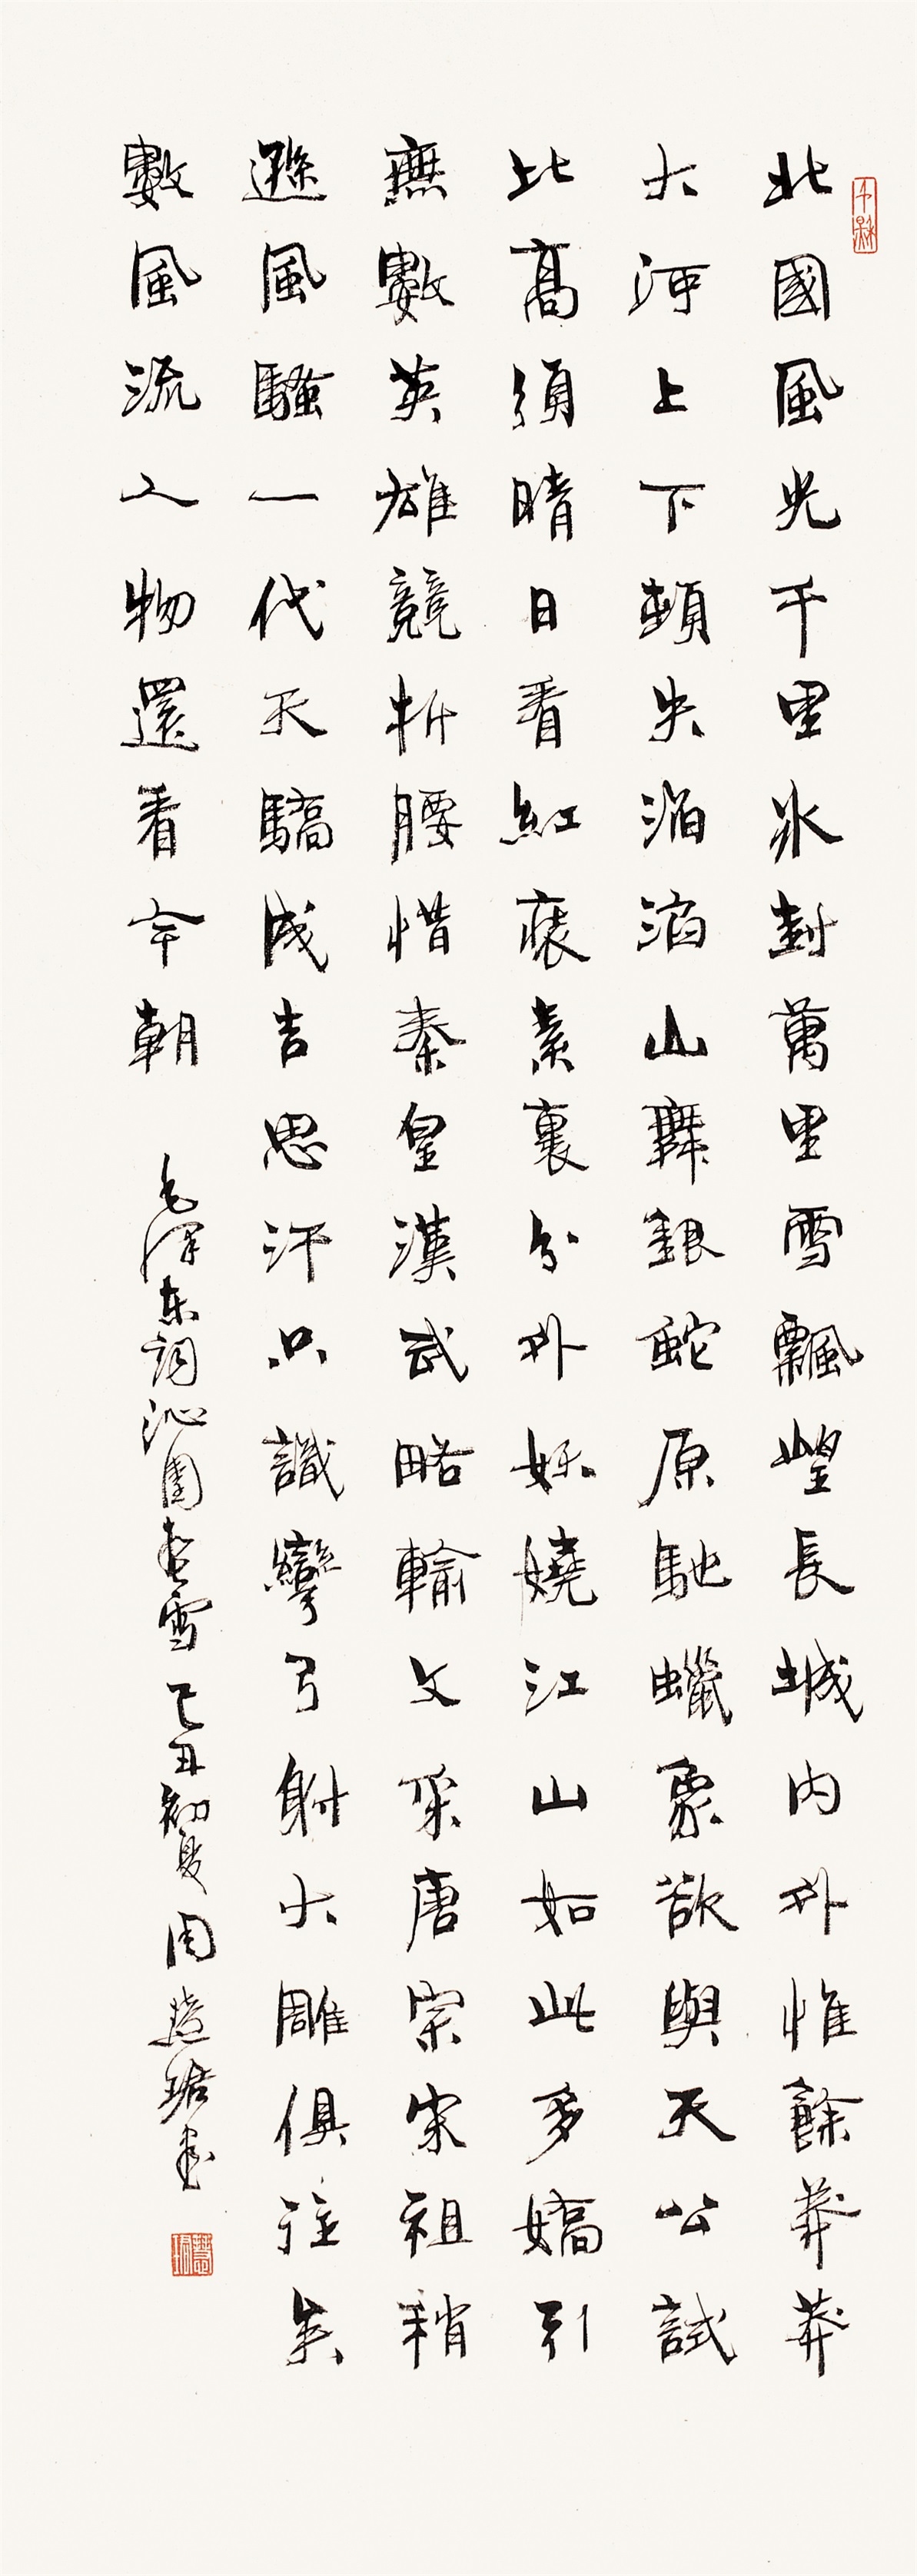 北國風光千里冰封萬里雪飄望長城内外惟餘莽莽
大河上下頓失滔滔山舞銀蛇原馳蠟象欲與天公試
比高須晴日看紅裝素裹分外妖嬈江山如此多嬌引
無數英雄競折腰惜秦皇漢武略輸文采唐宗宋祖稍
遜風騷一代天驕成吉思汗只識彎弓射大雕俱往矣
數風流人物還看今朝
毛澤东詞沁園春雪己丑初夏周慧珺书